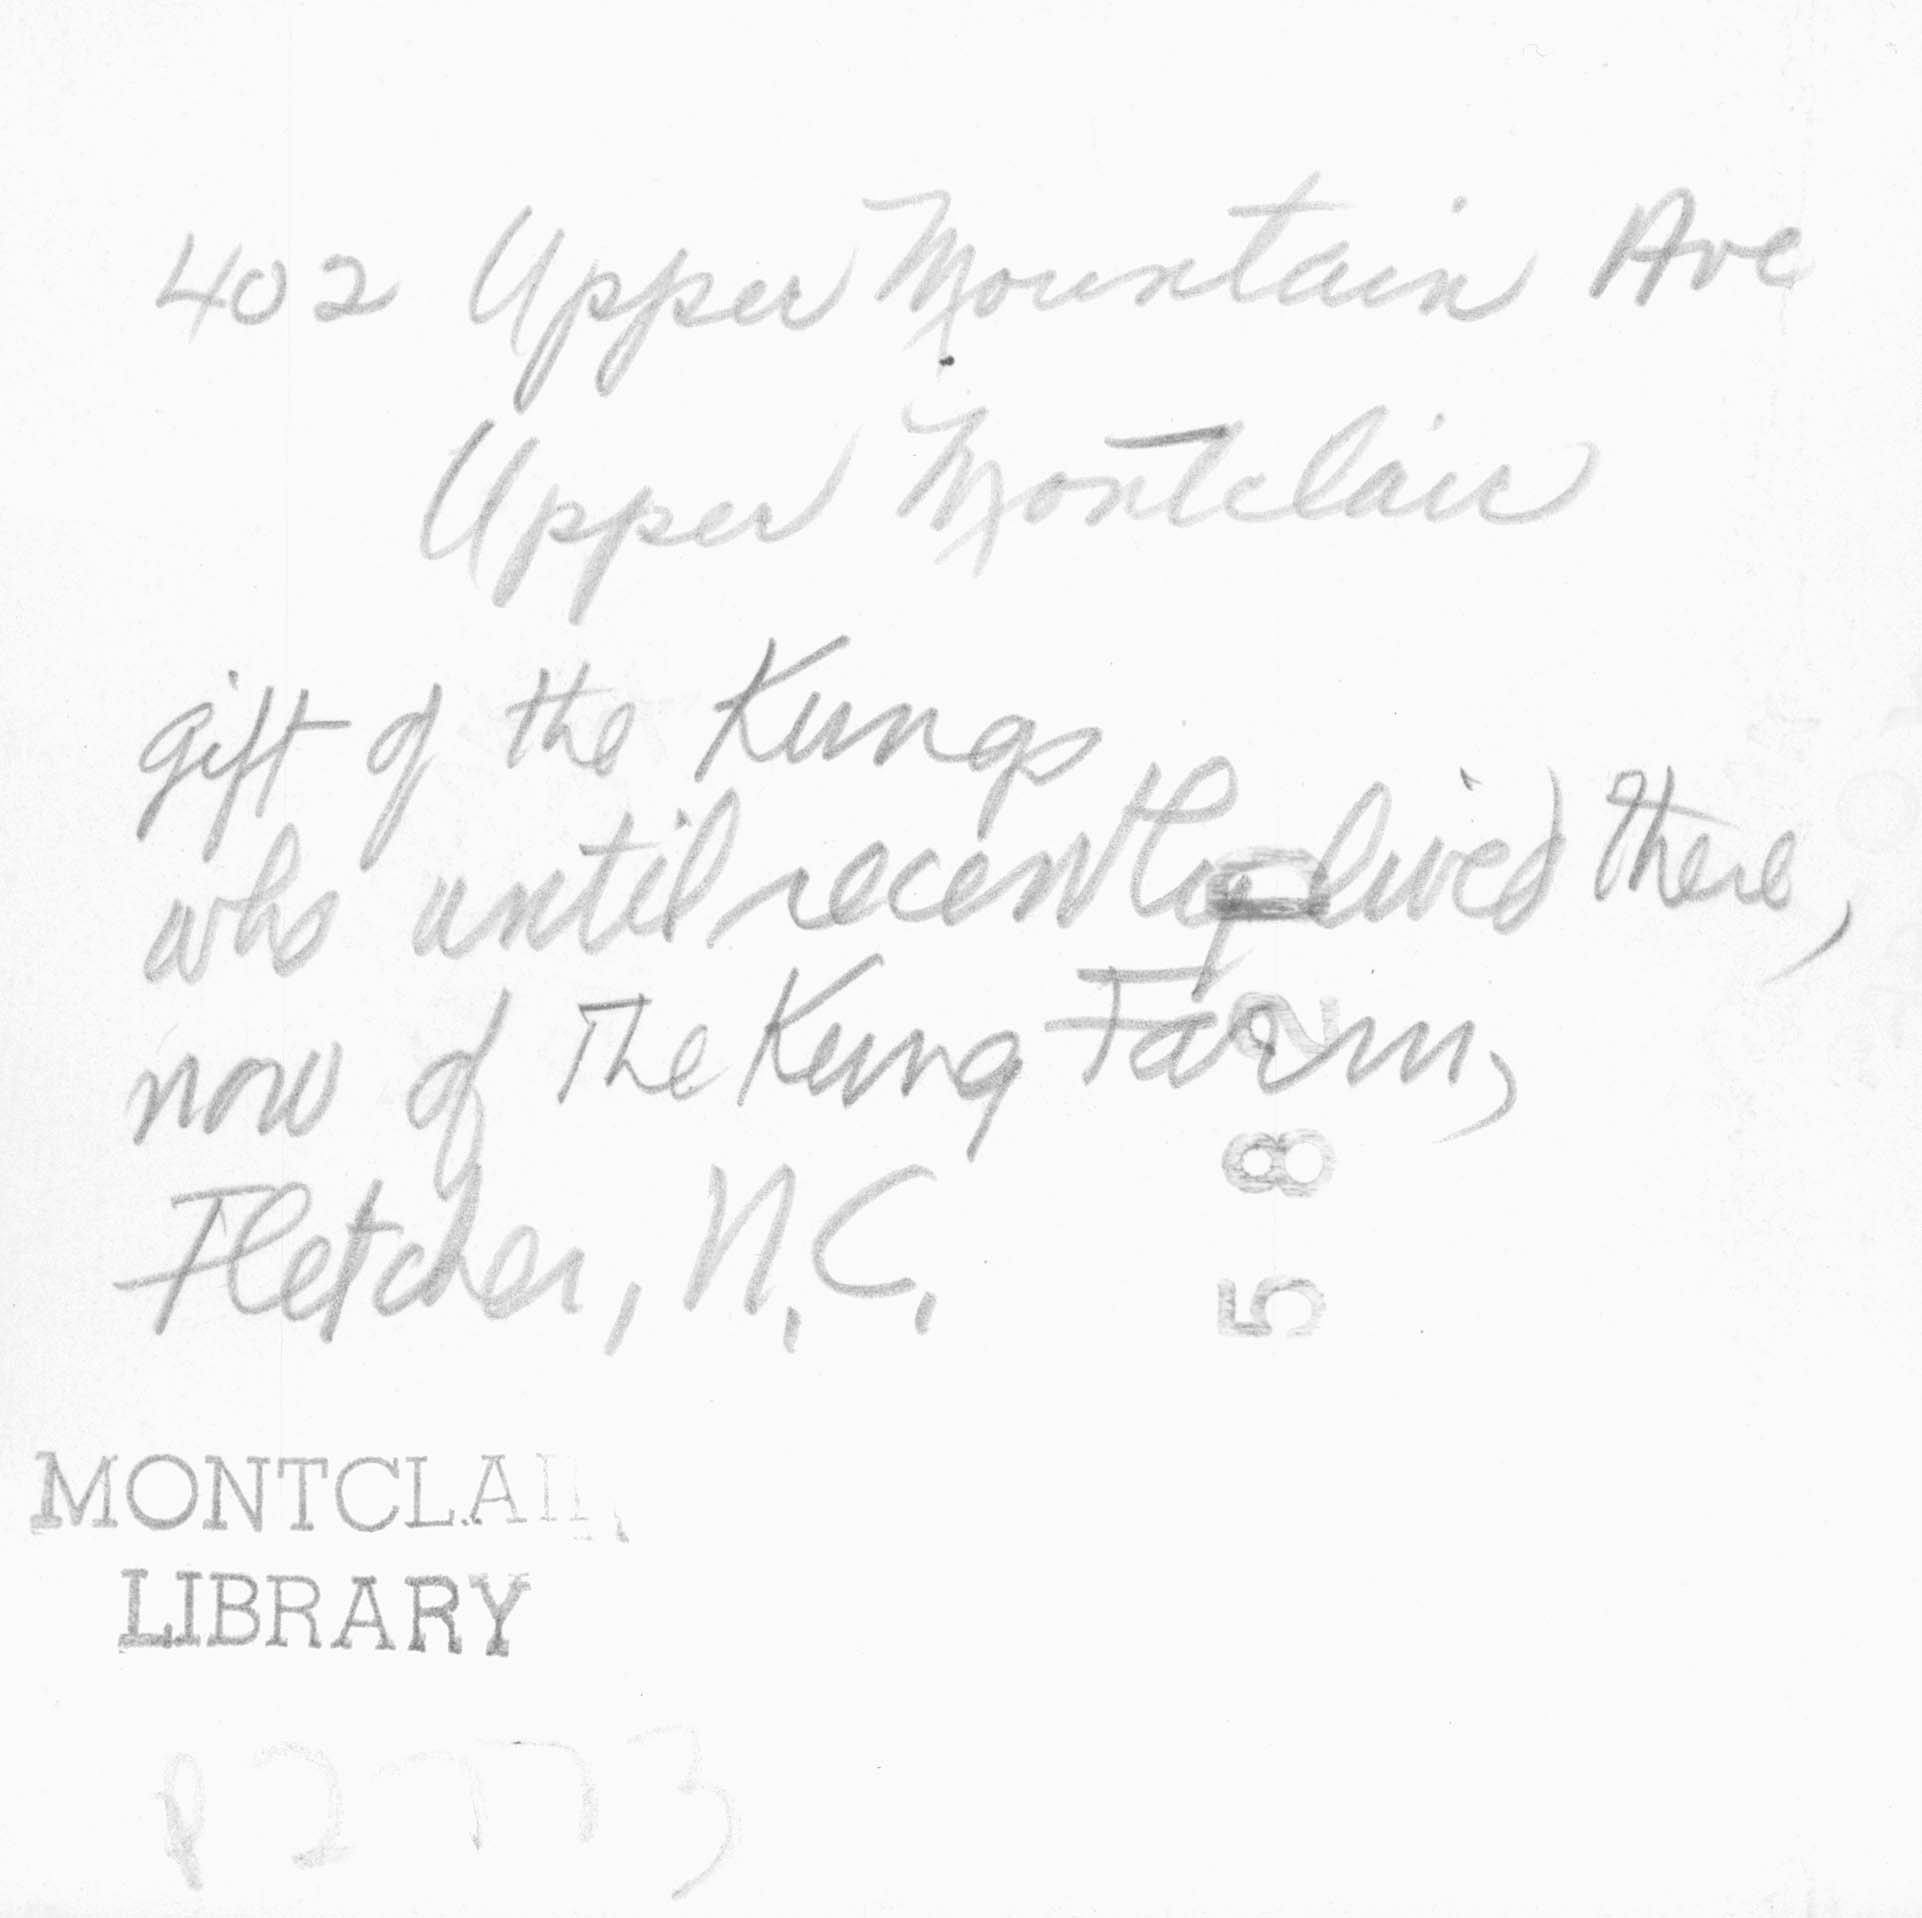 402 Upper Mountain Ave
Upper Montclair
gift of the Kungs
who until recently lived there,
now of The Kung Farm,
Fletcher, N.C.
MONTCLAIR
LIBRARY
P2773